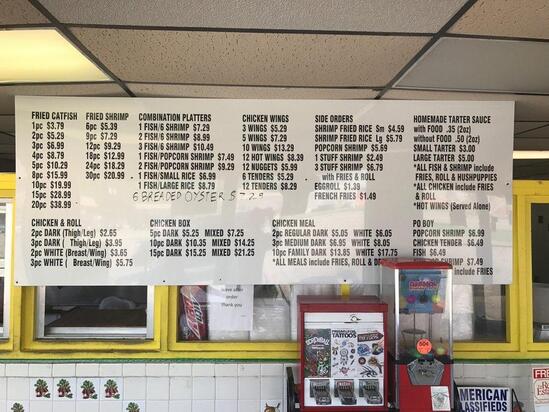 FRIED CATFISH
1pc $3.79
2pc $5.29
3pc $6.99
4pc $8.79
5pc $10.29
8pc $15.29
10pc $19.99
15pc $28.99
20pc $38.99
FRIED SHRIMP
6pc $5.39
9pc $7.29
12pc $9.29
14pc $12.99
18pc $13.99
30pc $20.99
COMBINATION PLATTERS
1 FISH/6 SHRIMP $7.29
2 FISH/6 SHRIMP $8.99
3 FISH/6 SHRIMP $10.49
1 FISH/POPCORN SHRIMP $7.49
2 FISH/POPCORN SHRIMP $9.29
1 FISH/SMALL RICE $6.99
1 FISH/LARGE RICE $8.79
6 BREADED OYSTER $7.29
CHICKEN WINGS
3 WINGS $5.29
5 WINGS $7.29
10 WINGS $13.29
12 HOT WINGS $8.39
12 NUGGETS $5.99
6 TENDERS $5.29
12 TENDERS $8.29
SIDE ORDERS
SHRIMP FRIED RICE Sm $4.59
SHRIMP FRIED RICE Lg $5.79
POPCORN SHRIMP $5.69
1 STUFF SHRIMP $2.49
3 STUFF SHRIMP $6.79
with FRIES & ROLL
EGGROLL $1.39
FRENCH FRIES $1.49
HOMEMADE TARTER SAUCE
with FOOD .35 (2oz)
without FOOD .50 (2oz)
SMALL TARTER $3.00
LARGE TARTER $5.00
*ALL FISH & SHRIMP include
FRIES, ROLL & HUSHPUPPIES
*ALL CHICKEN include FRIES
& ROLL
*HOT WINGS (Served Alone)
CHICKEN & ROLL
2pc DARK (Thigh/Leg) $2.65
3pc DARK ( Thigh/Leg) $3.95
2pc WHITE (Breast/Wing) $3.65
3pc WHITE ( Breast/Wing) $5.75
CHICKEN BOX
5pc DARK $5.25 MIXED $7.25
10pc DARK $10.35 MIXED $14.25
15pc DARK $15.25 MIXED $21.25
CHICKEN MEAL
2pc REGULAR DARK $5.05 WHITE $6.05
3pc MEDIUM DARK $6.95 WHITE $8.05
10pc FAMILY DARK $13.85 WHITE $17.75
*ALL MEALS include FRIES, ROLL & D
PO BOY
POPCORN SHRIMP $6.99
CHICKEN TENDER $6.49
FISH $6.49
SHRIMP $7.49
include FRIES
leave after
order
Thank you
TATTOOS
50¢
AMERICAN
CLASSIFIEDS
FREE